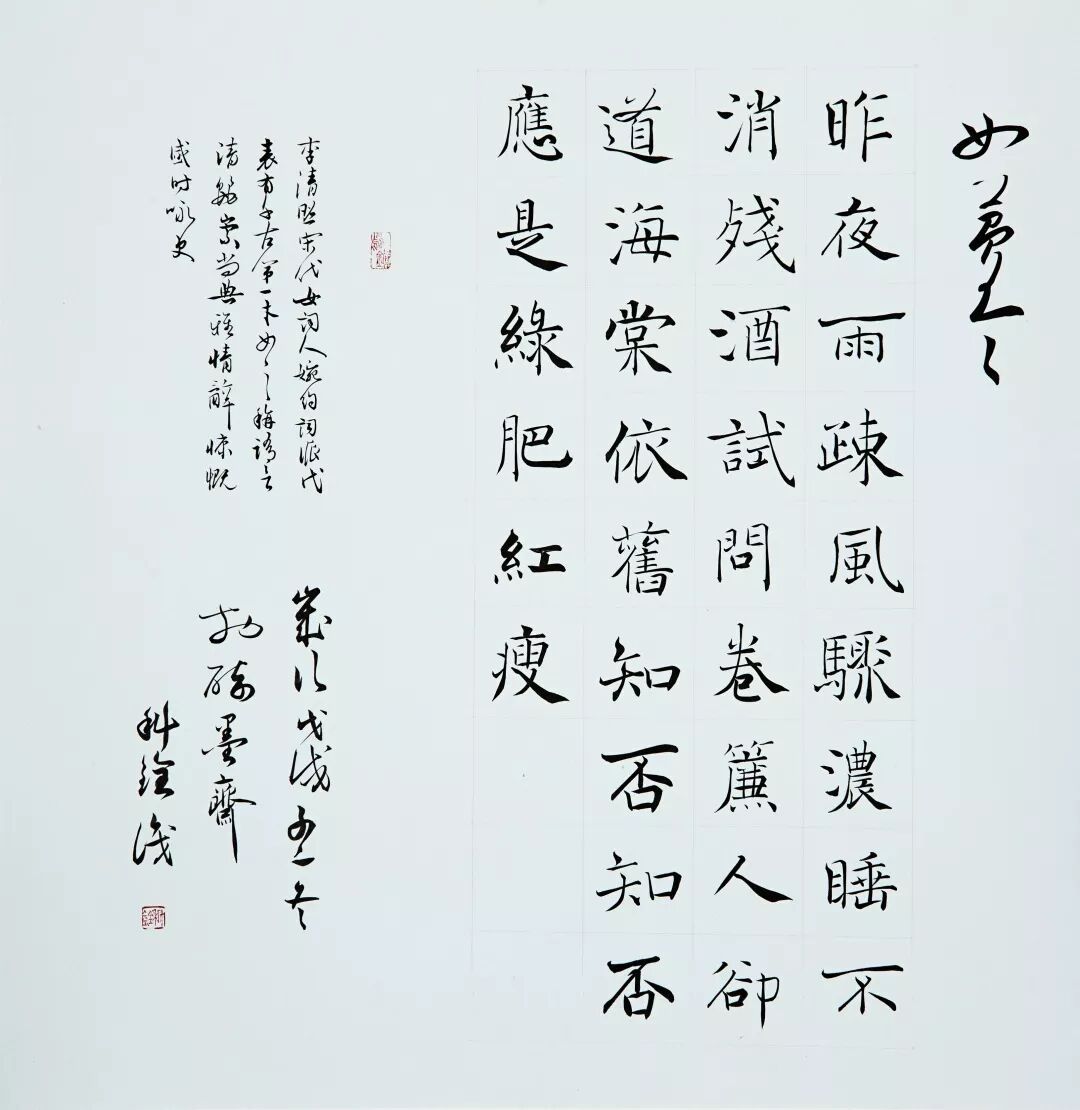 如夢令
昨夜雨疎風驟濃睡不
消殘酒試問卷簾人卻
道海棠依舊知否知否
應是綠肥紅瘦
李清照宋代女詞人婉約詞派代
表有千古第一才女之稱語言
清麗崇尚典雅情辭慷慨
感時詠史
歲次戊戌孟冬
墨齋
科銓識